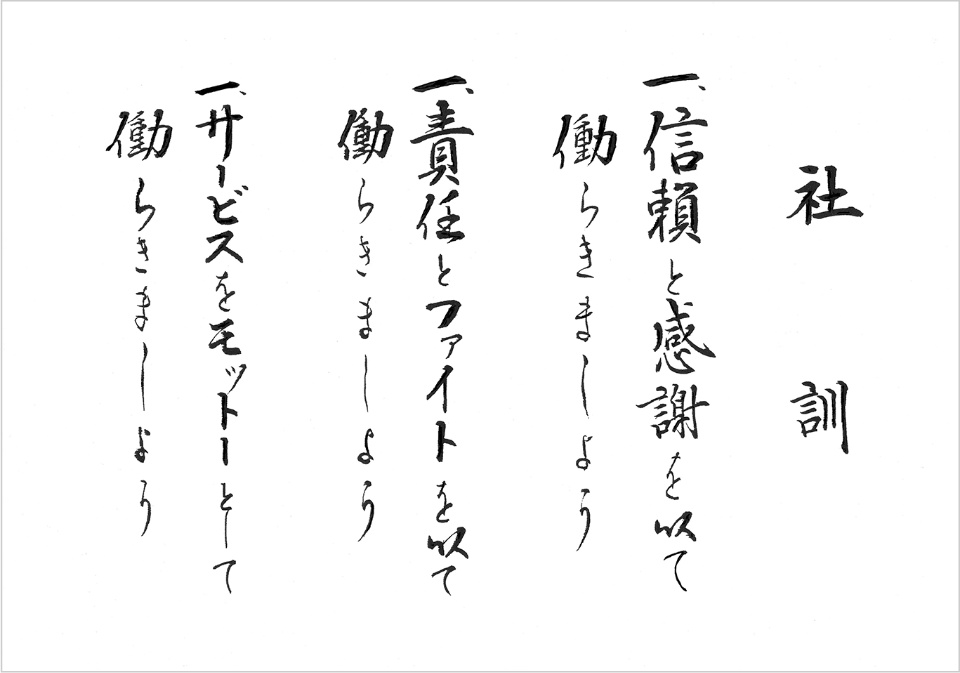 社訓
一、信頼と感謝を以て
働らきましょう
一、責任とファイトを以て
働らきましょう
一、サービスをモットーとして
働らきましょう